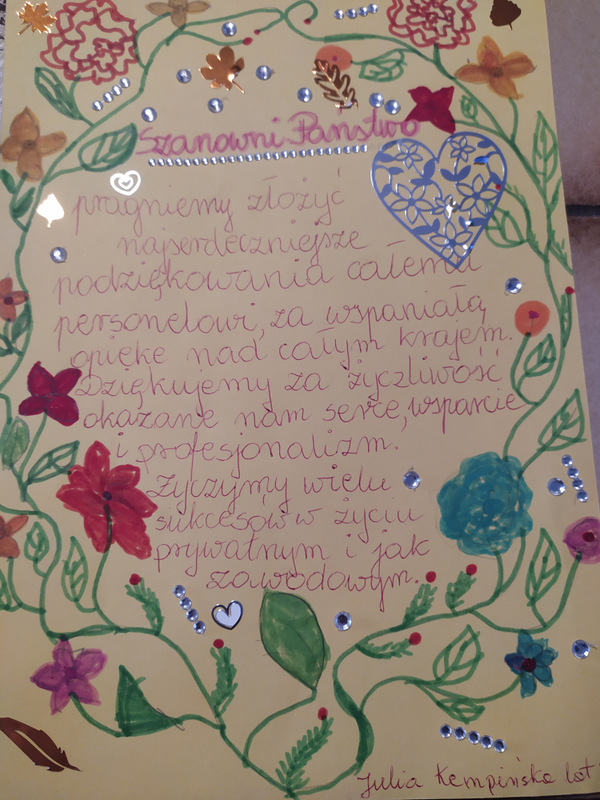 Szanowni Państwo
pragniemy złożyć
najserdeczniejsze
podziękowania całemu
personelowi, za wspaniałą
opiekę nad całym krajem.
Dziękujemy za życzliwość
okazane nam serce, wsparcie
i profesjonalizm.
Życzymy wielu
sukcesów w życiu
prywatnym i jak
zawodowym.
Julia Kempińska lat